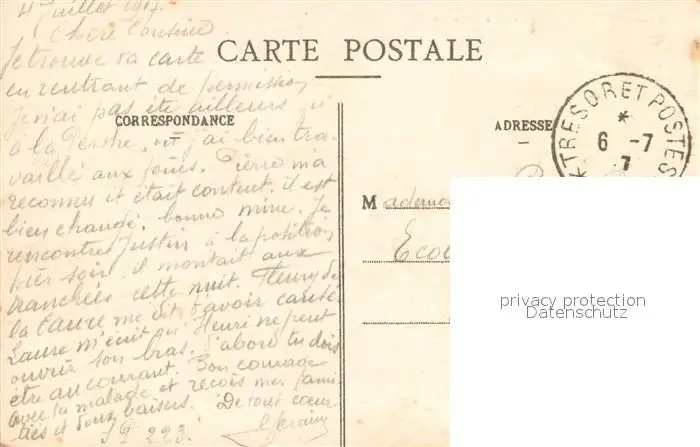 4 Juillet 1917.
Chère Cousine
Je trouve ta carte
en rentrant de permission
Je n'ai pas été ailleurs qu'
à la Perthe, où j'ai bien tra-
vaillé aux foins. Pierre m'a
reconnu il était content. il est
bien changé, bonne mine. Je
rencontres Justin à la position
hier soir. il montait aux
tranchées cette nuit. Fleury de
la Caure me dit d'avoir
Laure m'écrit qu' Henri ne peut
ouvrir son bras. d'abord tu dois
être au courant. Bon courage
avec ta malade et reçois mes ami-
tiés et doux baisers. De tout cœur
SP. 223.
CARTE POSTALE
CORRESPONDANCE
ADRESSE
TRESOR ET POSTES
6 -7
7
Mademo
Ecol
privacy protection
Datenschutz